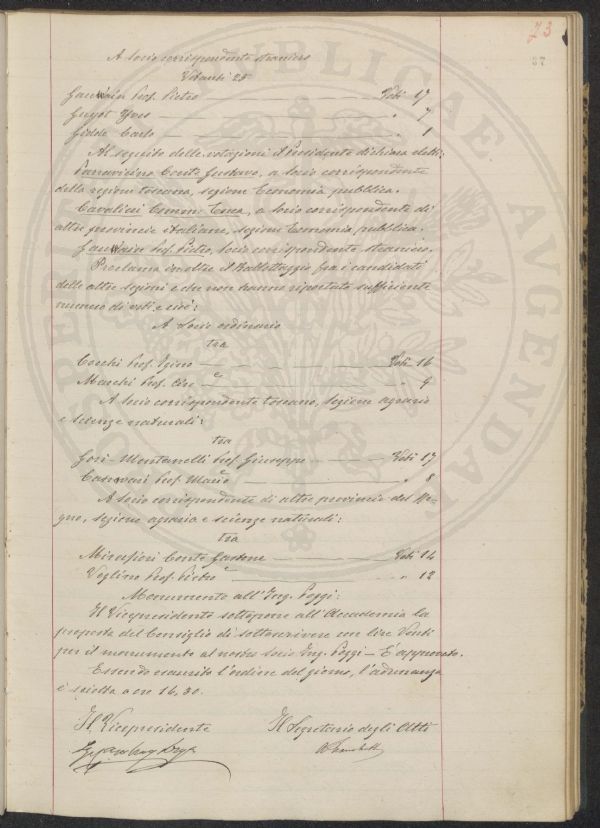 73
87
A Socio corrispondente straniero
Votanti 25
Prof. Pietro Voti 17
Guyot Yves " 7
Gidde Carlo " 1
Al seguito delle votazioni il Presidente dichiara eletti:
Conte Gustavo, a Socio corrispondente
della regione toscana, sezione Economia pubblica.
Cavalieri Comm. Enea, a Socio corrispondente di
altre provincie italiane, sezione Economia pubblica.
Prof. Pietro, Socio corrispondente straniero.
Proclama inoltre il Ballottaggio fra i candidati
delle altre sezioni e che non hanno riportato sufficiente
numero di voti e cioè:
A Socio ordinario
tra
Cocchi Prof. Igino Voti 16
Marchi Prof. " 9
A Socio corrispondente toscano, sezione agraria
e scienze naturali:
tra
Gori-Montanelli Prof. Giuseppe Voti 17
e
Canavari Prof. Mario " 8
A Socio corrispondente di altre provincie del Re-
gno, sezione agraria e scienze naturali:
tra
Mirafiori Conte Gastone Voti 14
e
Voglino Prof. Pietro " 12
Monumento all'Ing. Poggi:
Il Vicepresidente sottopone all'Accademia la
proposta del Consiglio di sottoscrivere con lire Venti
per il monumento al nostro Socio Ing. Poggi - È approvato.
Essendo esaurito l'ordine del giorno, l'adunanza
è sciolta a ore 16,30.
Il Vicepresidente Il Segretario degli Atti